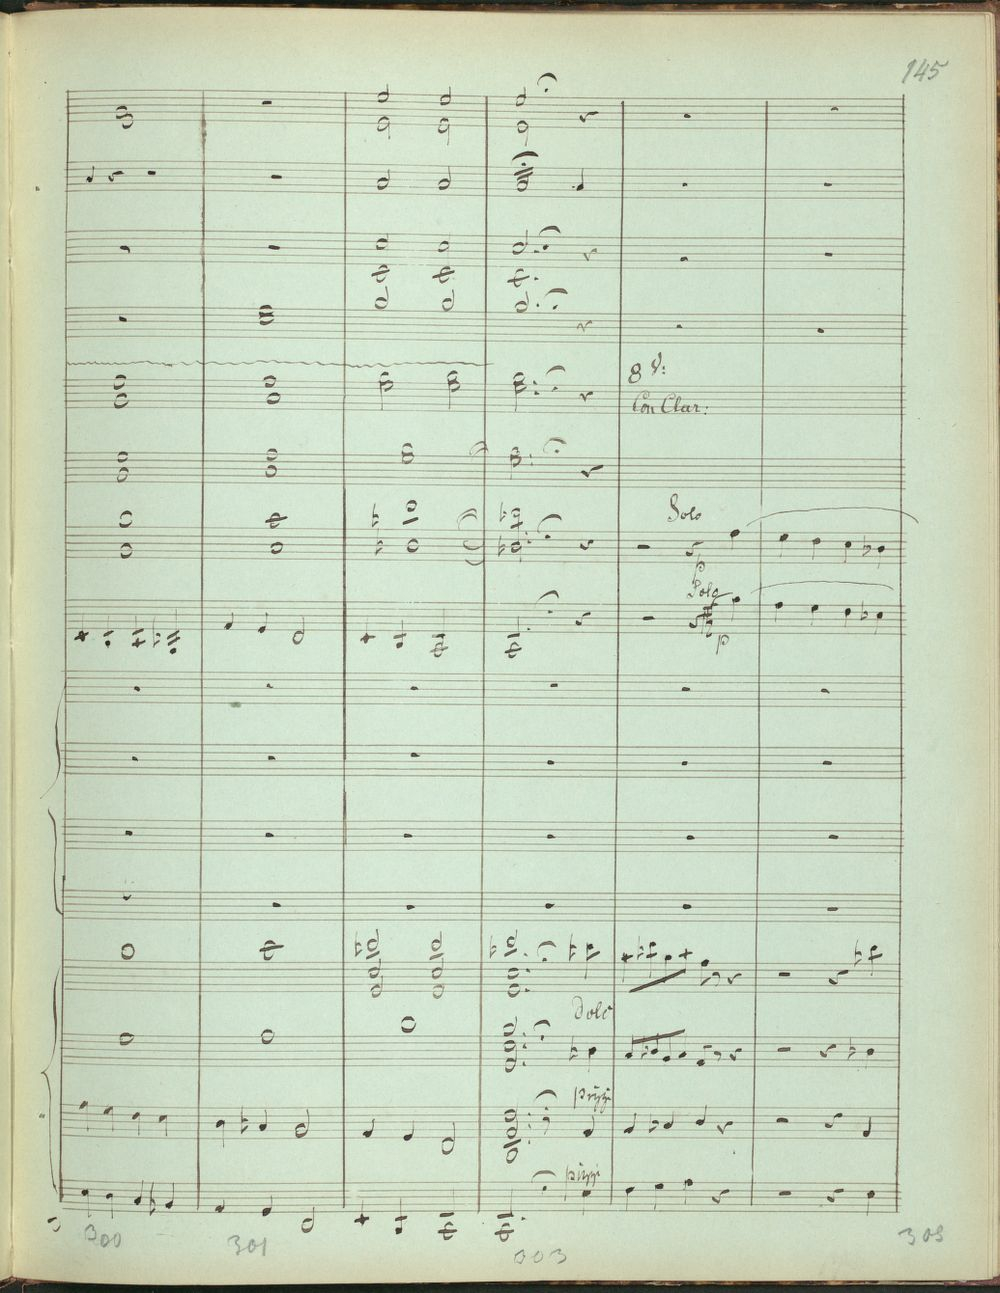 145
8ᵛ:
Con Clar:
Solo
p
Solo
p
Dolc
pizzi
pizzi
300
301
303
305